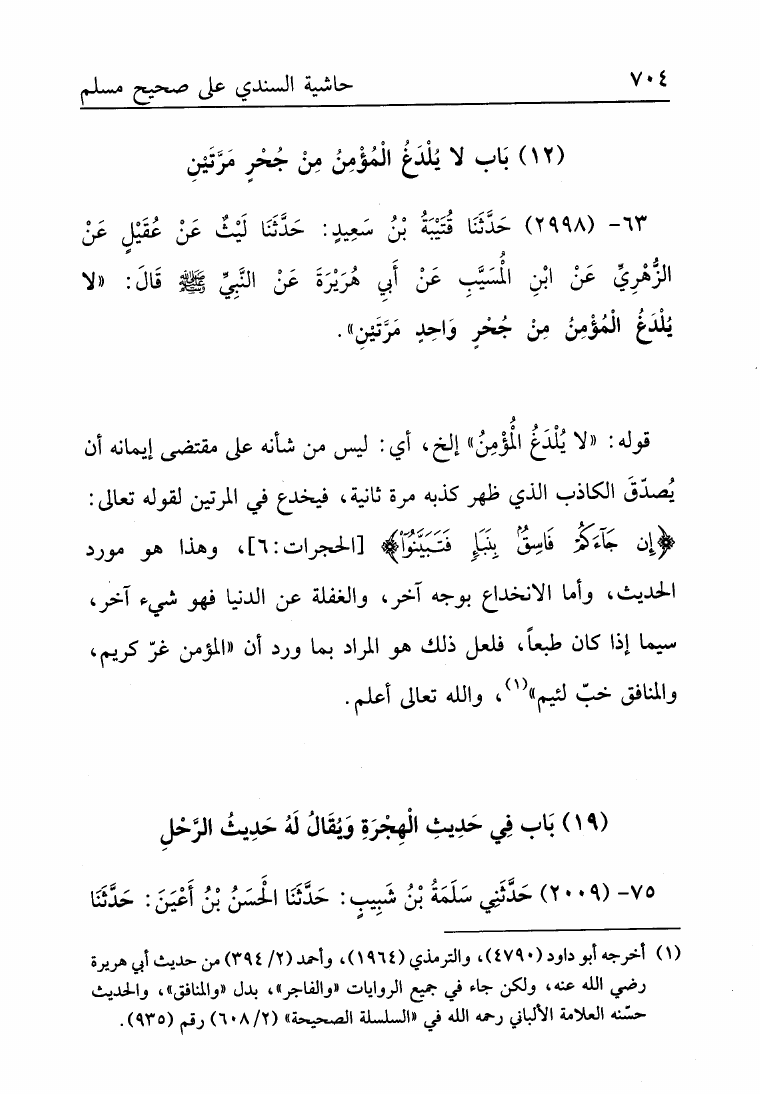 ٧٠٤ حاشية السندي على صحيح مسلم
(١٢) بَاب لا يُلْدَغُ الْمُؤْمِنُ مِنْ جُحْرٍ مَرَّتَيْنِ
٦٣- (٢٩٩٨) حَدَّثَنَا قُتَيْبَةُ بْنُ سَعِيدٍ: حَدَّثَنَا لَيْثٌ عَنْ عُقَيْلٍ عَنْ
الزُّهْرِيِّ عَنْ ابْنِ الْمُسَيَّبِ عَنْ أَبِي هُرَيْرَةَ عَنْ النَّبِيِّ ﷺ قَالَ: «لا
يُلْدَغُ الْمُؤْمِنُ مِنْ جُحْرٍ وَاحِدٍ مَرَّتَيْنِ».
قوله: «لا يُلْدَغُ الْمُؤْمِنُ» إلخ، أي: ليس من شأنه على مقتضى إيمانه أن
يُصدّقَ الكاذب الذي ظهر كذبه مرة ثانية، فيخدع في المرتين لقوله تعالى:
﴿إِن جَآءَكُمْ فَاسِقُۢ بِنَبَإٖ فَتَبَيَّنُوٓاْ﴾ [الحجرات:٦]، وهذا هو مورد
الحديث، وأما الانخداع بوجه آخر، والغفلة عن الدنيا فهو شيء آخر،
سيما إذا كان طبعاً، فلعل ذلك هو المراد بما ورد أن «المؤمن غرّ كريم،
والمنافق خبّ لئيم»(١)، والله تعالى أعلم.
(١٩) بَاب فِي حَدِيثِ الْهِجْرَةِ وَيُقَالُ لَهُ حَدِيثُ الرَّحْلِ
٧٥- (٢٠٠٩) حَدَّثَنِي سَلَمَةُ بْنُ شَبِيبٍ: حَدَّثَنَا الْحَسَنُ بْنُ أَعْيَنَ: حَدَّثَنَا
(١) أخرجه أبو داود (٤٧٩٠)، والترمذي (١٩٦٤)، وأحمد (٢/ ٣٩٤) من حديث أبي هريرة
رضي الله عنه، ولكن جاء في جميع الروايات «والفاجر»، بدل «والمنافق»، والحديث
حسّنه العلامة الألباني رحمه الله في «السلسلة الصحيحة» (٢/ ٦٠٨) رقم (٩٣٥).